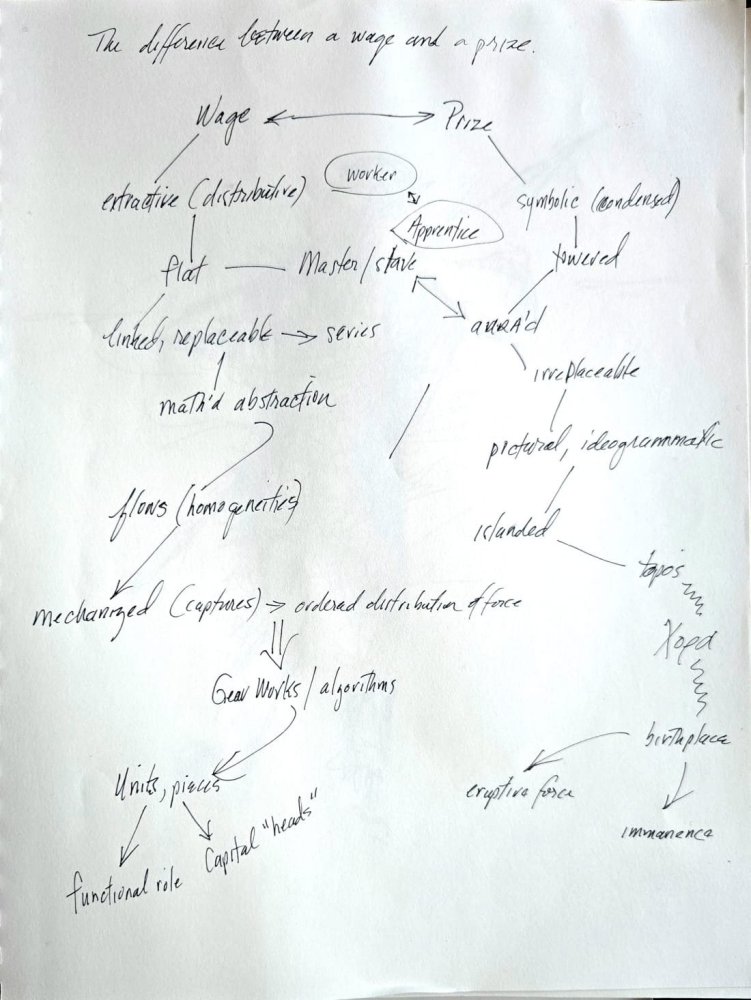 The difference between a wage and a prize.
Wage
Prize
extractive (distributive)
worker
symbolic (condensed)
Apprentice
flat
Master/slave
towered
linked, replaceable → series
auRA'd
irreplaceable
math'd abstraction
pictural, ideogrammatic
flows (homogeneities)
islanded
topos
mechanized (captures) → ordered distribution of force
Χορα
Gear Works/algorithms
birthplace
Units, pieces
eruptive force
Capital "heads"
immanence
functional role